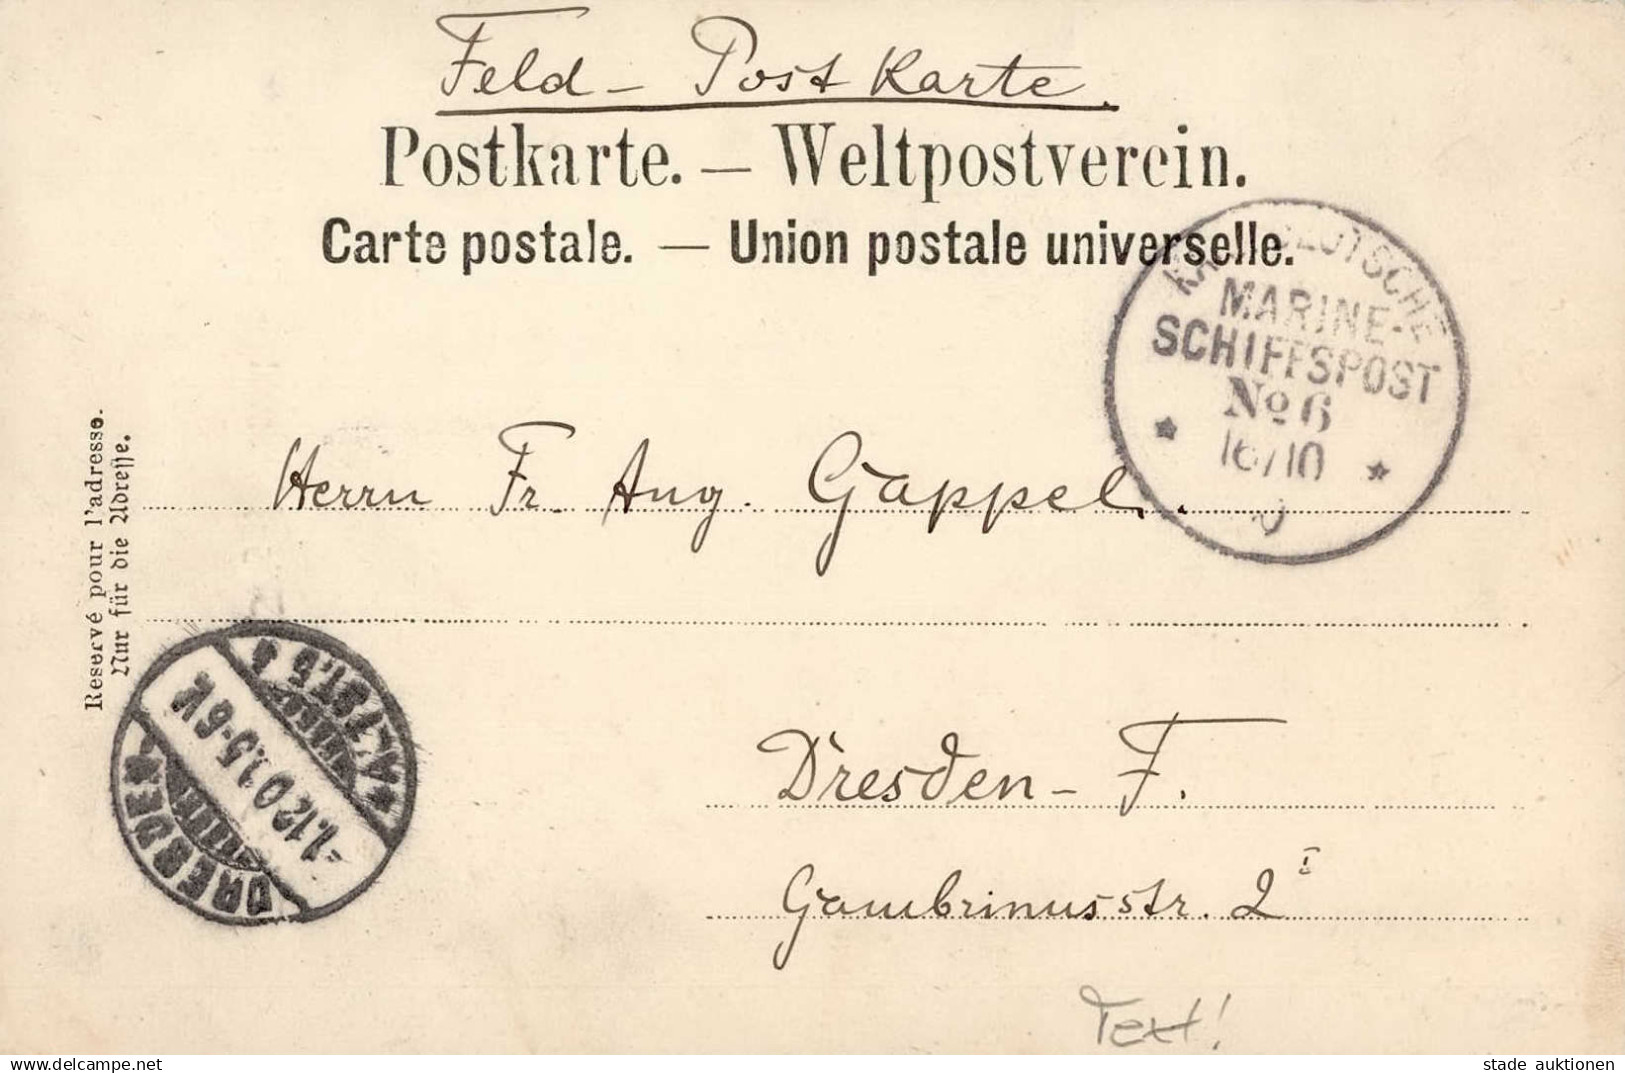 Feld - Post Karte.
Postkarte. — Weltpostverein.
Carte postale. — Union postale universelle.
DEUTSCHE
MARINE-
SCHIFFSPOST
No 6
16/10
Reservé pour l'adresse.
Nur für die Adresse.
Herrn Fr. Aug. Gappel.
DRESDEN
ALTST. 5
Dresden - F.
Gambrinusstr. 2 I
Text!
www.delcampe.net
stade auktionen